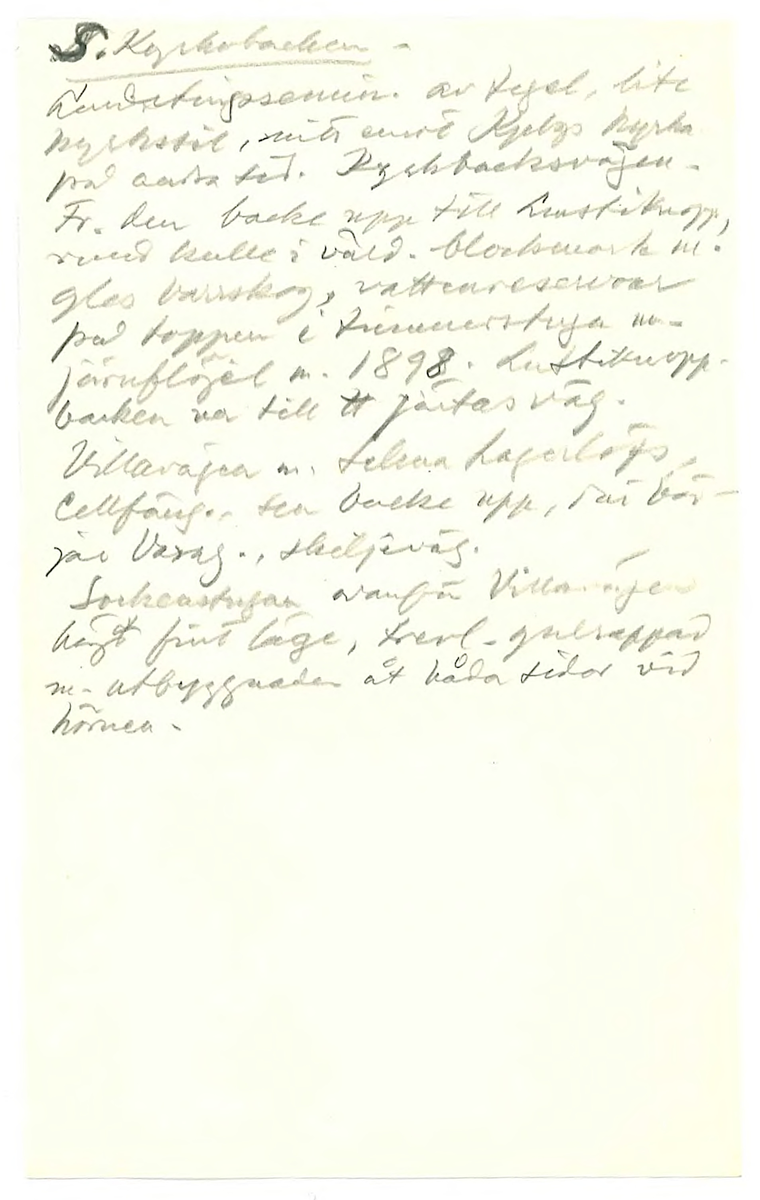 S. Kyrkobacken -
Landstingssemin. av tegel, lite
kyrkstil, mitt emot kyrka
på andra sid. Kyrkbacksvägen -
Fr. den backe upp till Lustiknopp,
rund kulle i våld. blockmark m.
gles barrskog, vattenreservoar
på toppen i timmerstuga m-
järnflöjel m. 1898. Lustiknopp-
backen ner till väg.
Villavägen m. Selma Lagerlöfs,
Cellfäng., sen backe upp, där bör-
jar Vasag., skiljeväg.
Sockenstugan ovanför Villavägen
högt fint läge, trevl- gulrappad
m- utbyggnader åt båda sidor vid
hörnen -